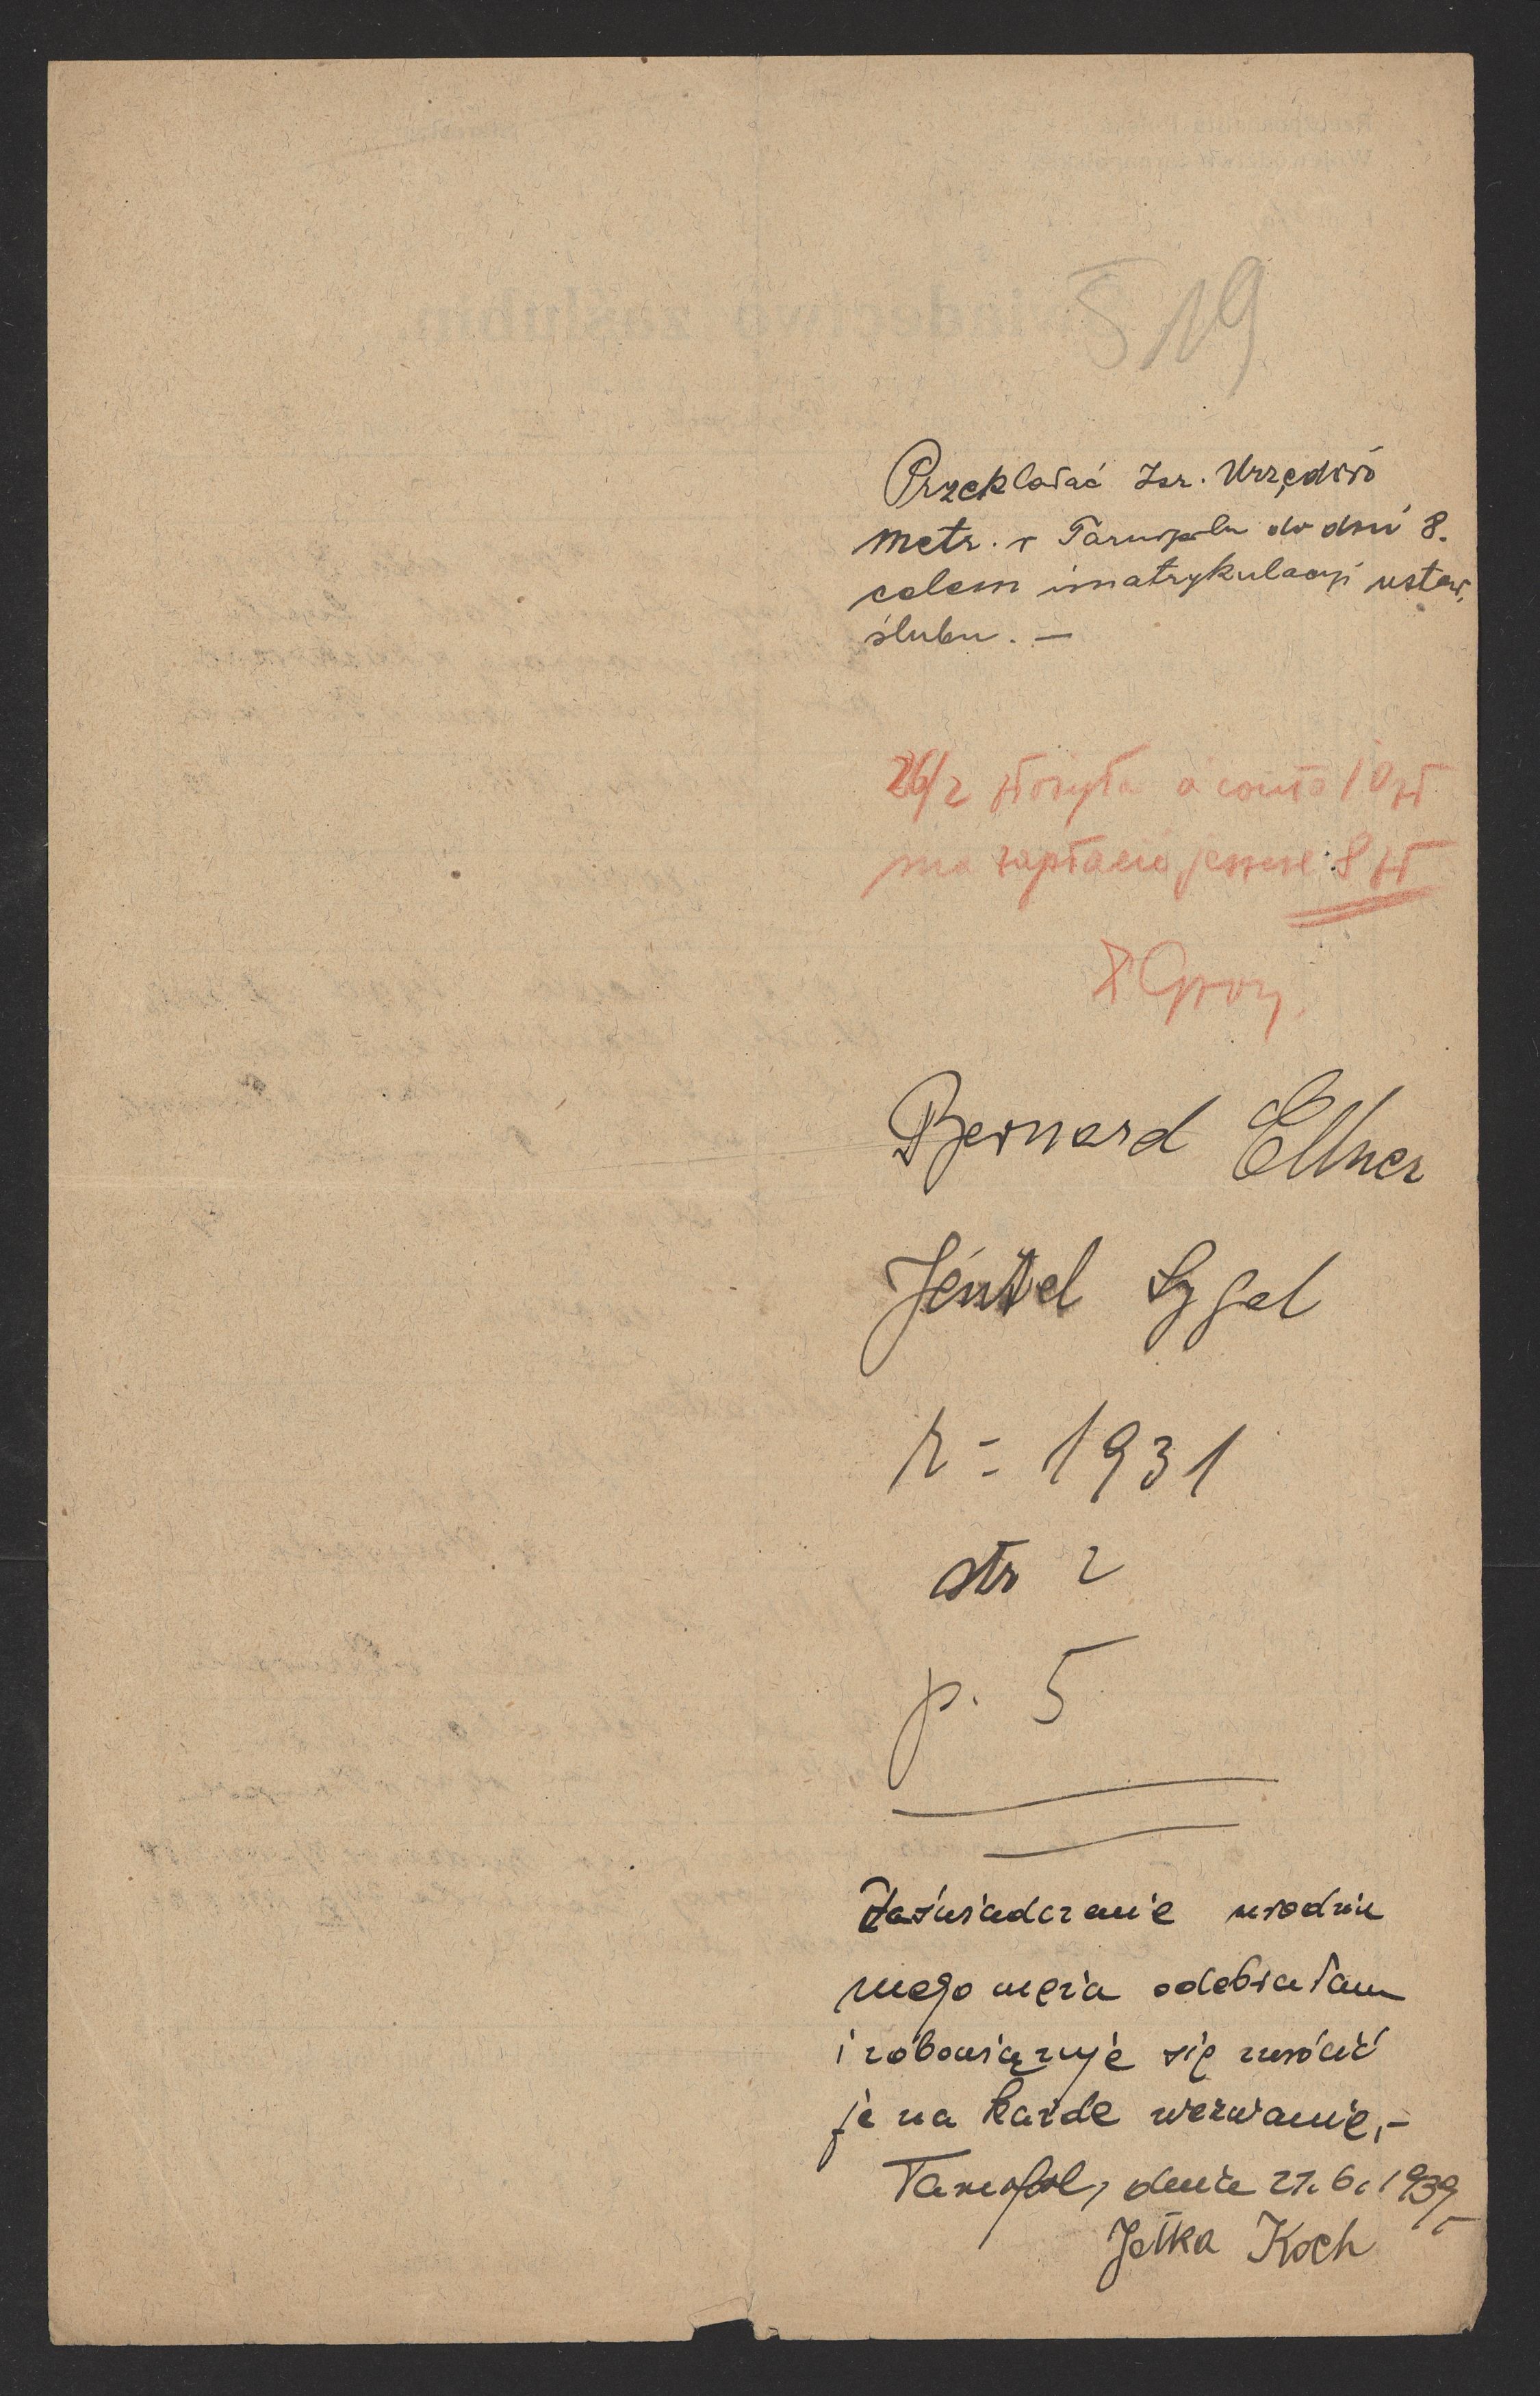 519
Przekładać Izr. Urzędowi
metr. w Tarnopolu do dni 8.
celem imatrykulacyi ustaw.
ślubu. —
26/2 złożyła a conto 10 zł
ma zapłacić jeszcze 8 zł
Bernard Ellner
Jentel Sygal
r = 1931
str 2
p. 5
Zaświadczenie urodzin
mego męża odebrałam
i zobowiązuje się zwrócić
je na każde wezwanie,-
Tarnopol, dnia 27.6.1939
Jetka Koch